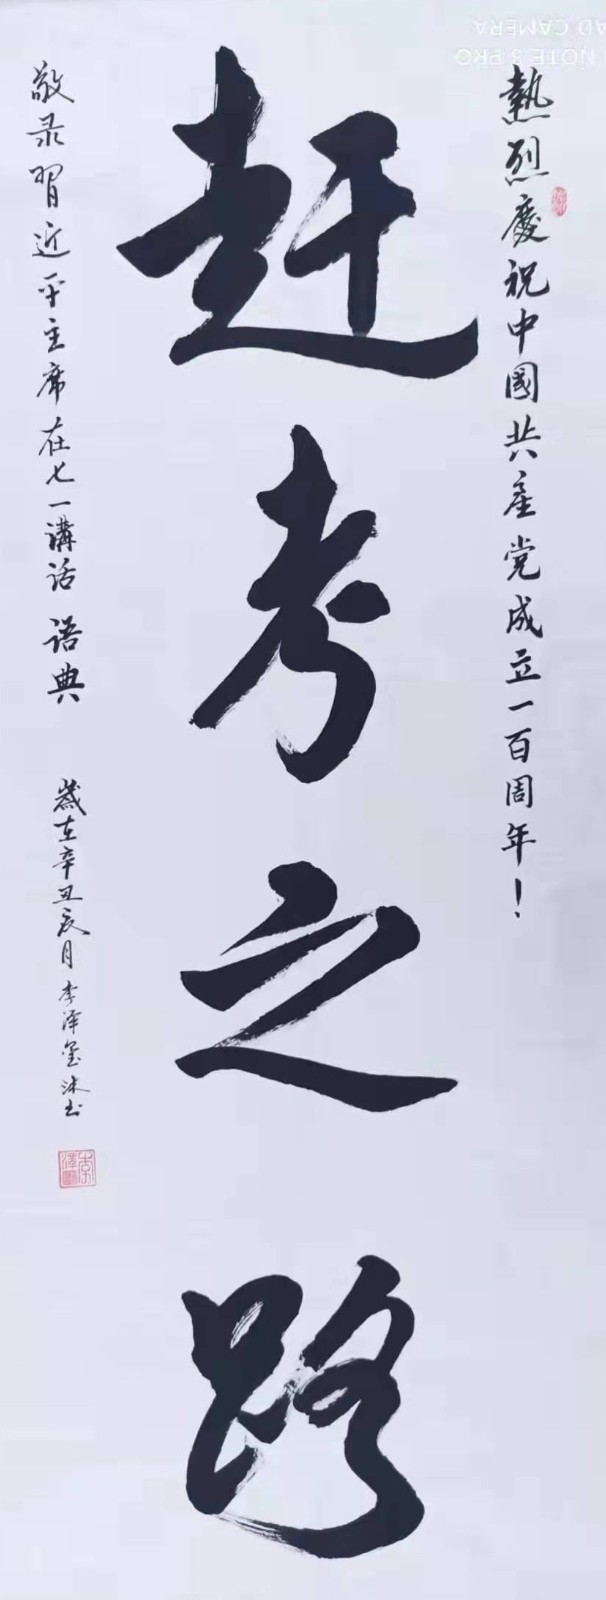 熱烈慶祝中國共產党成立一百周年！
赶考之路
敬录習近平主席在七一講話 语典
歲在辛丑辰月李泽玺沐书
NOTE 8 PRO
AD CAMERA